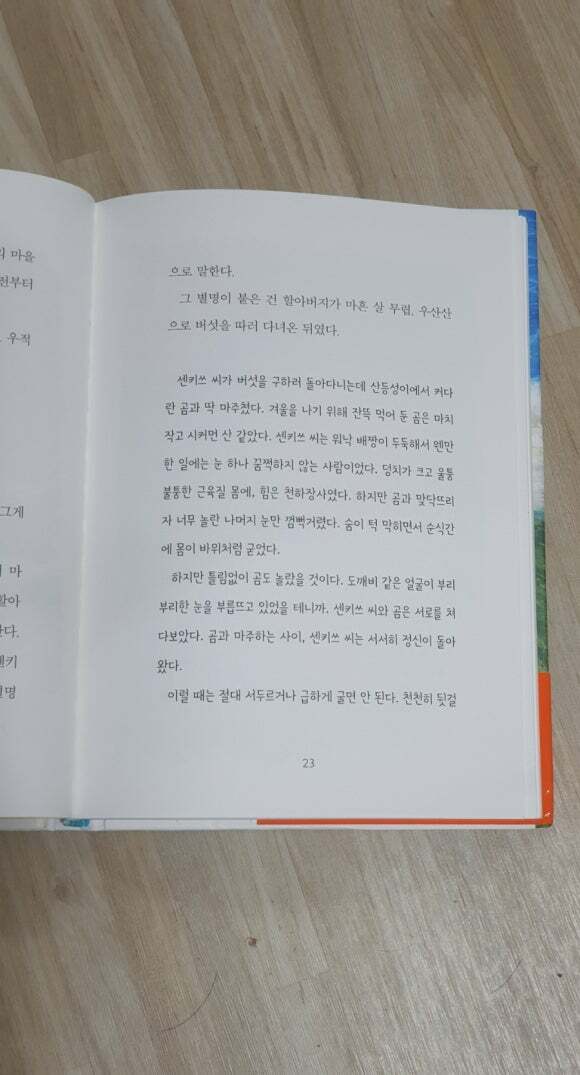 의 마을
전부터
우적
그게
마
할아
한다.
센키
별명
으로 말한다.
그 별명이 붙은 건 할아버지가 마흔 살 무렵, 우산산
으로 버섯을 따러 다녀온 뒤였다.
센키쓰 씨가 버섯을 구하러 돌아다니는데 산등성이에서 커다
란 곰과 딱 마주쳤다. 겨울을 나기 위해 잔뜩 먹어 둔 곰은 마치
작고 시커먼 산 같았다. 센키쓰 씨는 워낙 배짱이 두둑해서 웬만
한 일에는 눈 하나 꿈쩍하지 않는 사람이었다. 덩치가 크고 울퉁
불퉁한 근육질 몸에, 힘은 천하장사였다. 하지만 곰과 맞닥뜨리
자 너무 놀란 나머지 눈만 껌뻑거렸다. 숨이 턱 막히면서 순식간
에 몸이 바위처럼 굳었다.
하지만 틀림없이 곰도 놀랐을 것이다. 도깨비 같은 얼굴이 부리
부리한 눈을 부릅뜨고 있었을 테니까. 센키쓰 씨와 곰은 서로를 쳐
다보았다. 곰과 마주하는 사이, 센키쓰 씨는 서서히 정신이 돌아
왔다.
이럴 때는 절대 서두르거나 급하게 굴면 안 된다. 천천히 뒷걸
23